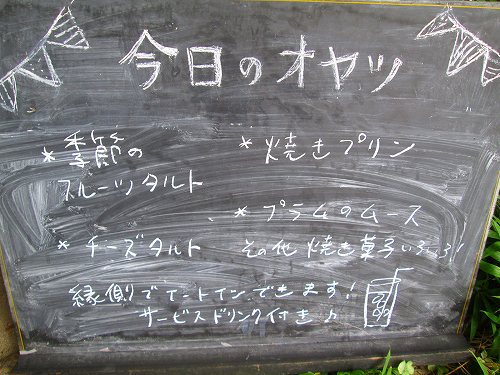 今日のオヤツ
* 季節の
フルーツタルト
* 焼きプリン
* プラムのムース
* チーズタルト
その他 焼き菓子いろいろ!
縁側でイートインできます!
サービスドリンク付き♪